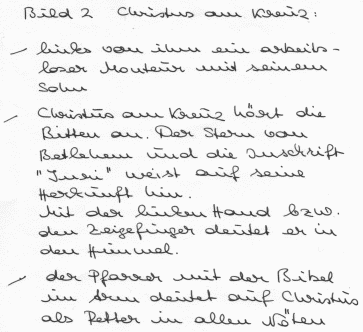 Bild 2 Christus am Kreuz:
– links von ihm ein arbeits-
loser Monteur mit seinem
Sohn
– Christus am Kreuz hört die
Bitten an. Der Stern von
Betlehem und die Inschrift
"Inri" weist auf seine
Herkunft hin.
Mit der linken Hand bzw.
den Zeigefinger deutet er in
den Himmel.
– der Pfarrer mit der Bibel
im Arm deutet auf Christus
als Retter in allen Nöten